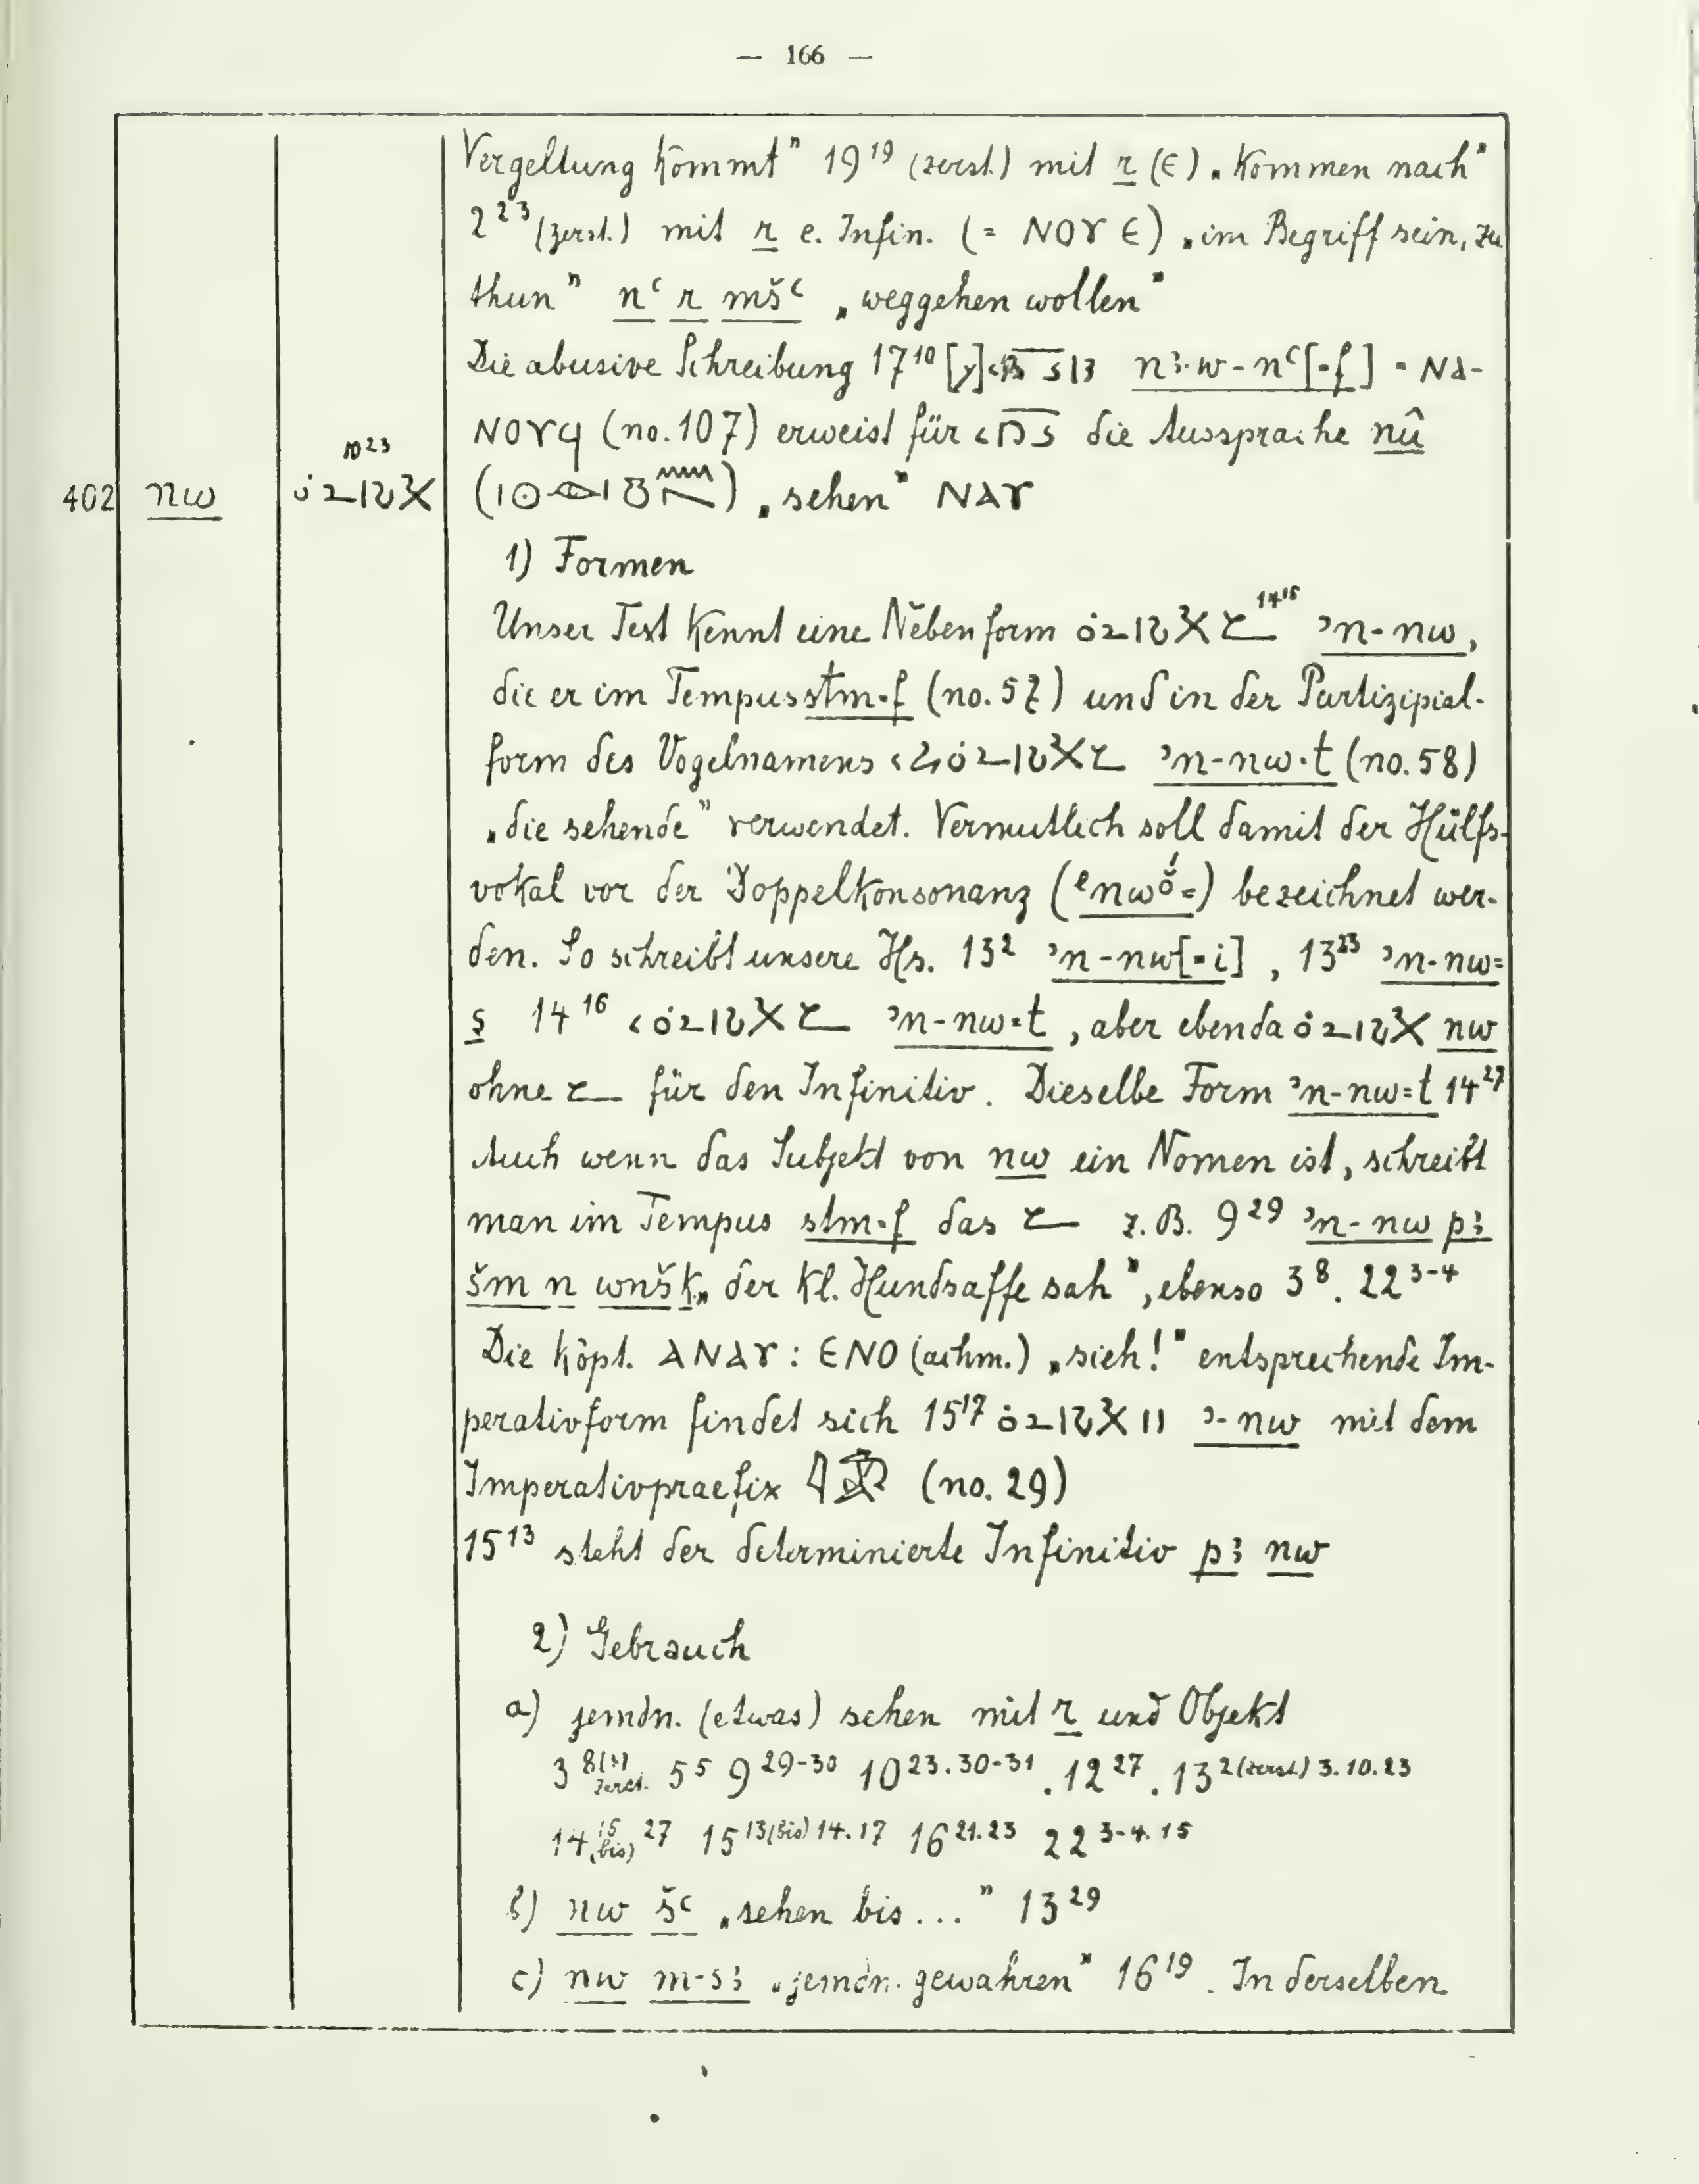 — 166 —
Vergeltung kommt" 19¹⁹ (zerst.) mit r (ⲉ) „kommen nach"
2²³ (zerst.) mit r c. Infin. (= ⲛⲟⲩ ⲉ) „im Begriff sein, zu
thun" nꜥ r mšꜥ „weggehen wollen"
Die abusive Schreibung 17¹⁰ nꜣ·w-nꜥ[=f] = ⲛⲁ-
ⲛⲟⲩϥ (no. 107) erweist für die Aussprache nû
402 nw 10²³ „sehen" ⲛⲁⲩ
1) Formen
Unser Text kennt eine Nebenform ¹⁴¹⁵ ʾn-nw,
die er im Tempus stm·f (no. 57) und in der Partizipial-
form des Vogelnamens ʾn-nw·t (no. 58)
„die sehende" verwendet. Vermutlich soll damit der Hülfs-
vokal vor der Doppelkonsonanz (ᵉnwŏ́=) bezeichnet wer-
den. So schreibt unsere Hs. 13² ʾn-nw[=i], 13²³ ʾn-nw=
s 14¹⁶ ʾn-nw=t, aber ebenda nw
ohne für den Infinitiv. Dieselbe Form ʾn-nw=t 14²⁷
Auch wenn das Subjekt von nw ein Nomen ist, schreibt
man im Tempus stm·f das z. B. 9²⁹ ʾn-nw pꜣ
šm n wnš k „der kl. Hundsaffe sah", ebenso 3⁸. 22³⁻⁴
Die kopt. ⲁⲛⲁⲩ : ⲉⲛⲟ (achm.) „sieh!" entsprechende Im-
perativform findet sich 15¹⁷ ʾ-nw mit dem
Imperativpraefix 𓇋𓅓 (no. 29)
15¹³ steht der determinierte Infinitiv pꜣ nw
2) Gebrauch
a) jemdn. (etwas) sehen mit r und Objekt
3⁸ zerst. 5⁵ 9²⁹⁻³⁰ 10²³·³⁰⁻³¹. 12²⁷. 13²⁽ᶻᵉʳˢᵗ·⁾ ³·¹⁰·²³
14¹⁵ (bis) ²⁷ 15¹³⁽ᵇⁱˢ⁾ ¹⁴·¹⁷ 16²¹·²³ 22³⁻⁴·¹⁵
b) nw šꜥ „sehen bis ..." 13²⁹
c) nw m-sꜣ „jemdn. gewahren" 16¹⁹. In derselben